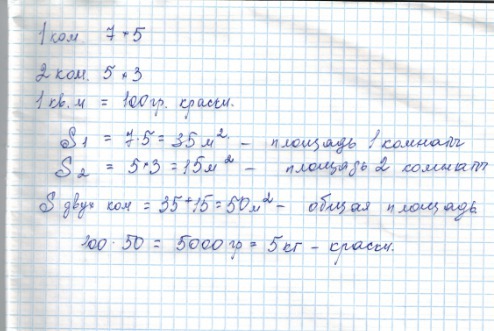 1 ком 7*5
2 ком. 5*3
1 кв.м = 100 гр. краски.
S1 = 7·5 = 35 м² - площадь 1 комнаты
S2 = 5*3 = 15 м² - площадь 2 комнат
S двух ком = 35+15 = 50 м² - общая площадь
100·50 = 5000 гр = 5 кг - краски.